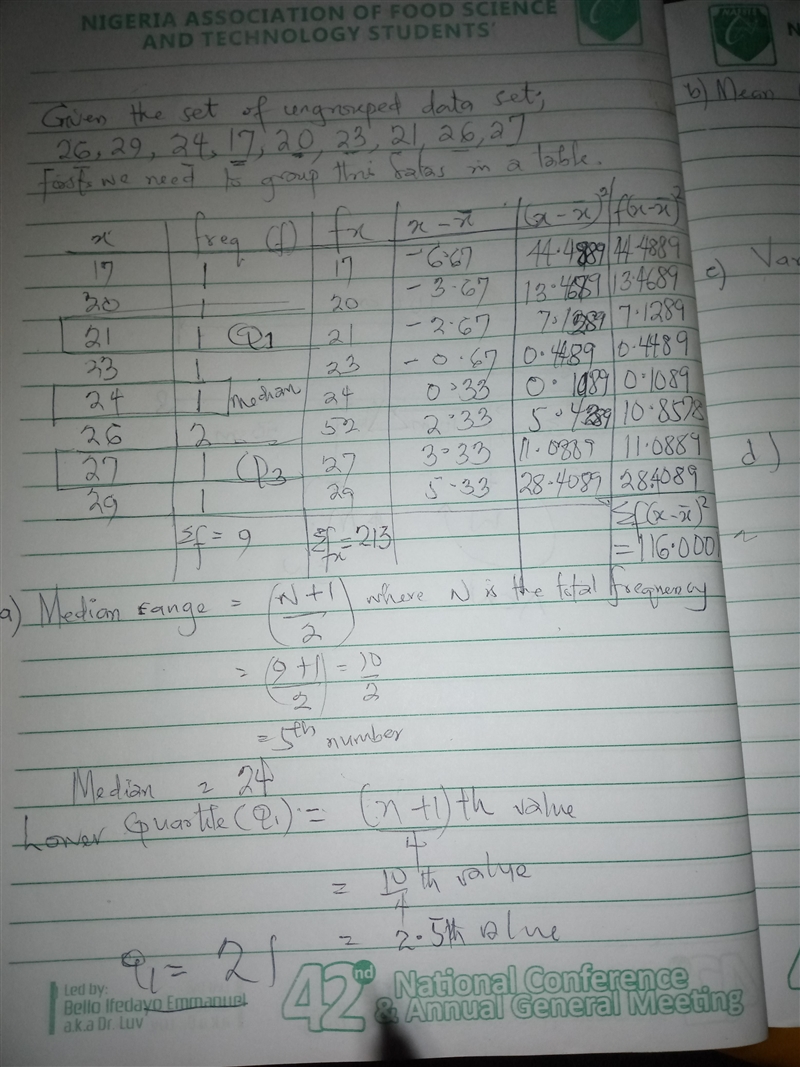 NIGERIA ASSOCIATION OF FOOD SCIENCE
AND TECHNOLOGY STUDENTS'
Given the set of ungrouped data set;
26, 29, 24, 17, 20, 23, 21, 26, 27
First we need to group this datas in a table.
x freq (f) fx x - x̄ (x - x̄)² f(x - x̄)²
17 1 17 -6.67 44.4889 44.4889
20 1 20 -3.67 13.4689 13.4689
21 1 Q1 21 -2.67 7.1289 7.1289
23 1 23 -0.67 0.4489 0.4489
24 1 median 24 0.33 0.1089 0.1089
26 2 52 2.33 5.4289 10.8578
27 1 Q3 27 3.33 11.0889 11.0889
29 1 29 5.33 28.4089 284089
Σf = 9 Σfx = 213 Σf(x - x̄)²
= 116.000
a) Median range = (N+1/2) where N is the total frequency
= (9+1/2) = 10/2
= 5th number
Median = 24
Lower Quartile (Q1) = (n+1)/4 th value
= 10/4 th value
= 2.5th value
Q1 = 21
Led by:
Bello Ifedayo Emmanuel
a.k.a Dr. Luv
42nd National Conference
& Annual General Meeting
b) Mean
c) Var
d)